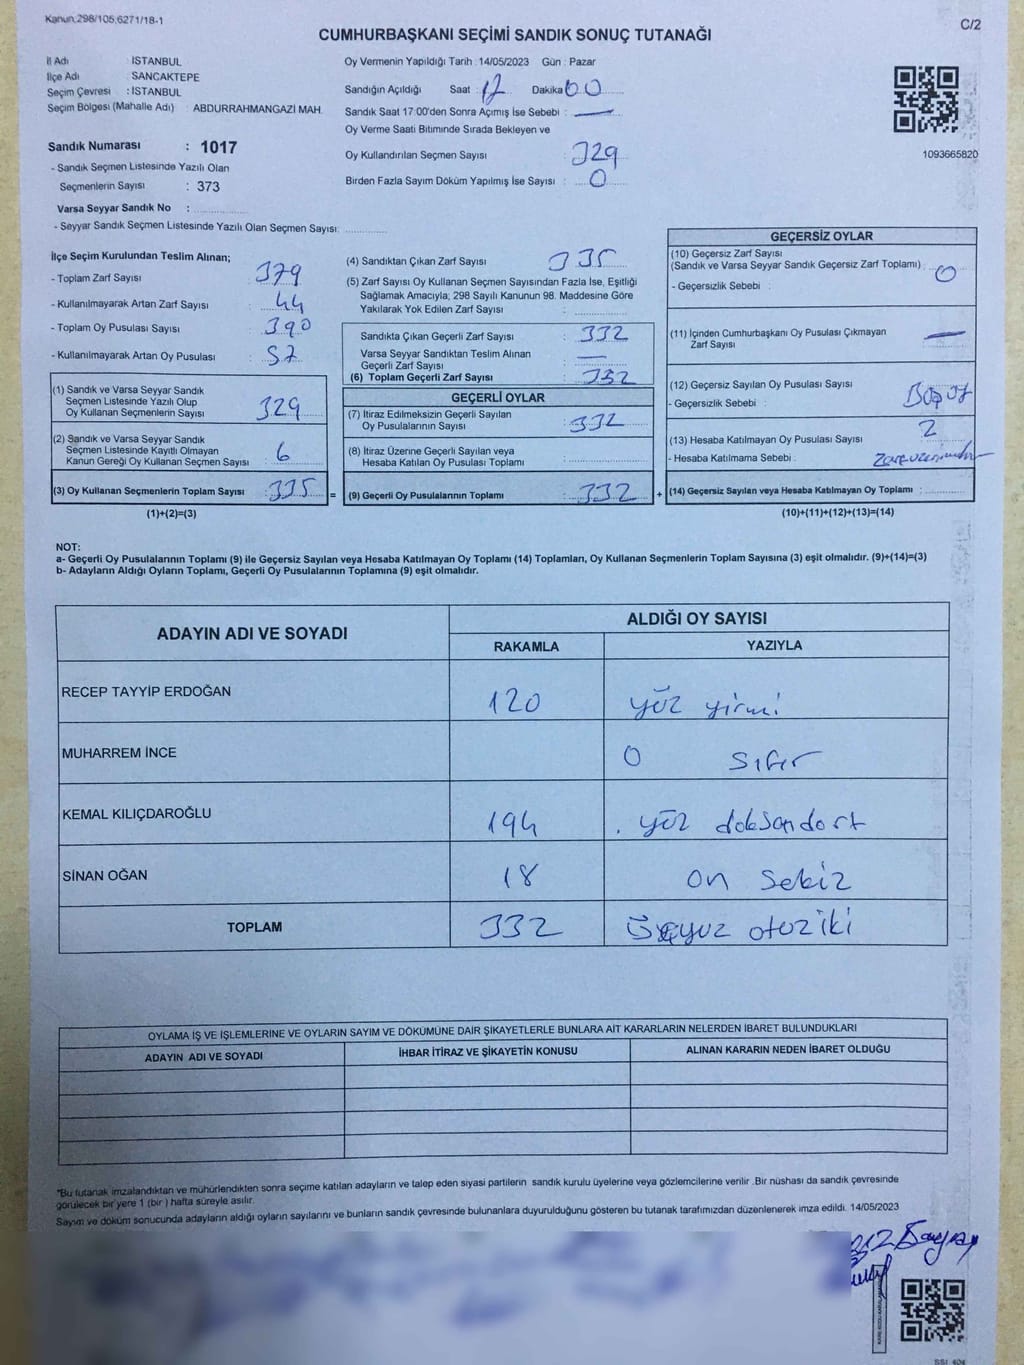 Kanun.298/105,6271/18-1
C/2
CUMHURBAŞKANI SEÇİMİ SANDIK SONUÇ TUTANAĞI
İl Adı : İSTANBUL
İlçe Adı : SANCAKTEPE
Seçim Çevresi : İSTANBUL
Seçim Bölgesi (Mahalle Adı) : ABDURRAHMANGAZİ MAH.
Sandık Numarası : 1017
- Sandık Seçmen Listesinde Yazılı Olan
Seçmenlerin Sayısı : 373
Varsa Seyyar Sandık No :
- Seyyar Sandık Seçmen Listesinde Yazılı Olan Seçmen Sayısı:
Oy Vermenin Yapıldığı Tarih : 14/05/2023 Gün : Pazar
Sandığın Açıldığı Saat : 17 Dakika 00
Sandık Saat 17:00'den Sonra Açımış İse Sebebi : —
Oy Verme Saati Bitiminde Sırada Bekleyen ve
Oy Kullandırılan Seçmen Sayısı 329
Birden Fazla Sayım Döküm Yapılmış İse Sayısı : 0
1093665820
İlçe Seçim Kurulundan Teslim Alınan;
- Toplam Zarf Sayısı : 379
- Kullanılmayarak Artan Zarf Sayısı : 44
- Toplam Oy Pusulası Sayısı : 390
- Kullanılmayarak Artan Oy Pusulası : 57
(1) Sandık ve Varsa Seyyar Sandık
Seçmen Listesinde Yazılı Olup
Oy Kullanan Seçmenlerin Sayısı : 329
(2) Sandık ve Varsa Seyyar Sandık
Seçmen Listesinde Kayıtlı Olmayan
Kanun Gereği Oy Kullanan Seçmen Sayısı : 6
(3) Oy Kullanan Seçmenlerin Toplam Sayısı : 335 =
(1)+(2)=(3)
(4) Sandıktan Çıkan Zarf Sayısı : 335
(5) Zarf Sayısı Oy Kullanan Seçmen Sayısından Fazla İse, Eşitliği
Sağlamak Amacıyla; 298 Sayılı Kanunun 98. Maddesine Göre
Yakılarak Yok Edilen Zarf Sayısı :
Sandıkta Çıkan Geçerli Zarf Sayısı : 332
Varsa Seyyar Sandıktan Teslim Alınan
Geçerli Zarf Sayısı : —
(6) Toplam Geçerli Zarf Sayısı : 332
GEÇERLİ OYLAR
(7) İtiraz Edilmeksizin Geçerli Sayılan
Oy Pusulalarının Sayısı : 332
(8) İtiraz Üzerine Geçerli Sayılan veya
Hesaba Katılan Oy Pusulası Toplamı :
(9) Geçerli Oy Pusulalarının Toplamı : 332 +
GEÇERSİZ OYLAR
(10) Geçersiz Zarf Sayısı
(Sandık ve Varsa Seyyar Sandık Geçersiz Zarf Toplamı) : 0
- Geçersizlik Sebebi :
(11) İçinden Cumhurbaşkanı Oy Pusulası Çıkmayan
Zarf Sayısı : —
(12) Geçersiz Sayılan Oy Pusulası Sayısı :
- Geçersizlik Sebebi :
(13) Hesaba Katılmayan Oy Pusulası Sayısı : 2
- Hesaba Katılmama Sebebi :
(14) Geçersiz Sayılan veya Hesaba Katılmayan Oy Toplamı :
(10)+(11)+(12)+(13)=(14)
NOT:
a- Geçerli Oy Pusulalarının Toplamı (9) ile Geçersiz Sayılan veya Hesaba Katılmayan Oy Toplamı (14) Toplamları, Oy Kullanan Seçmenlerin Toplam Sayısına (3) eşit olmalıdır. (9)+(14)=(3)
b- Adayların Aldığı Oyların Toplamı, Geçerli Oy Pusulalarının Toplamına (9) eşit olmalıdır.
ADAYIN ADI VE SOYADI
ALDIĞI OY SAYISI
RAKAMLA YAZIYLA
RECEP TAYYİP ERDOĞAN 120 yüz yirmi
MUHARREM İNCE 0 sıfır
KEMAL KILIÇDAROĞLU 194 yüz doksandort
SİNAN OĞAN 18 on sekiz
TOPLAM 332 üçyuz otuz iki
OYLAMA İŞ VE İŞLEMLERİNE VE OYLARIN SAYIM VE DÖKÜMÜNE DAİR ŞİKAYETLERLE BUNLARA AİT KARARLARIN NELERDEN İBARET BULUNDUKLARI
ADAYIN ADI VE SOYADI
İHBAR İTİRAZ VE ŞİKAYETİN KONUSU
ALINAN KARARIN NEDEN İBARET OLDUĞU
"Bu tutanak imzalandıktan ve mühürlendikten sonra seçime katılan adayların ve talep eden siyasi partilerin sandık kurulu üyelerine veya gözlemcilerine verilir .Bir nüshası da sandık çevresinde
görülecek bir yere 1 (bir ) hafta süreyle asılır.
Sayım ve döküm sonucunda adayların aldığı oyların sayılarını ve bunların sandık çevresinde bulunanlara duyurulduğunu gösteren bu tutanak tarafımızdan düzenlenerek imza edildi. 14/05/2023